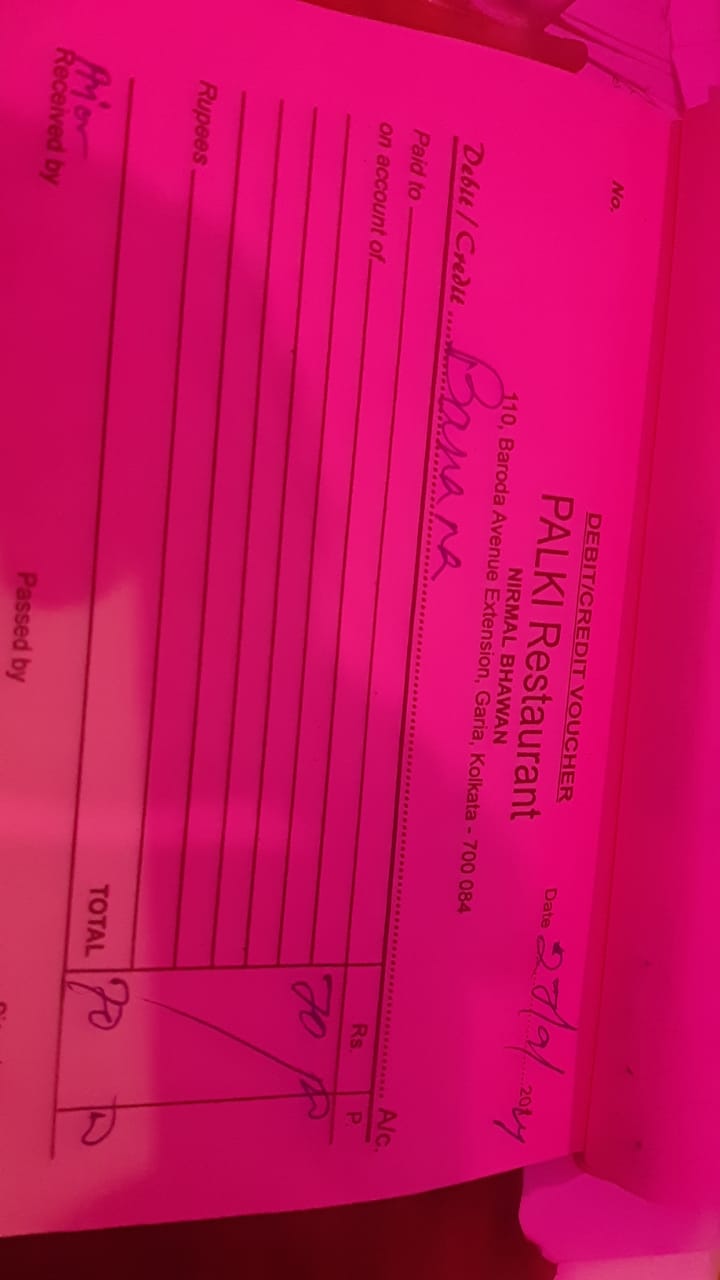 No.
DEBIT/CREDIT VOUCHER
PALKI Restaurant
NIRMAL BHAWAN
110, Baroda Avenue Extension, Garia, Kolkata - 700 084
Date
Debit / Credit Banana A/c.
Paid to
on account of
Rs. P.
Rupees
TOTAL
Received by
Passed by